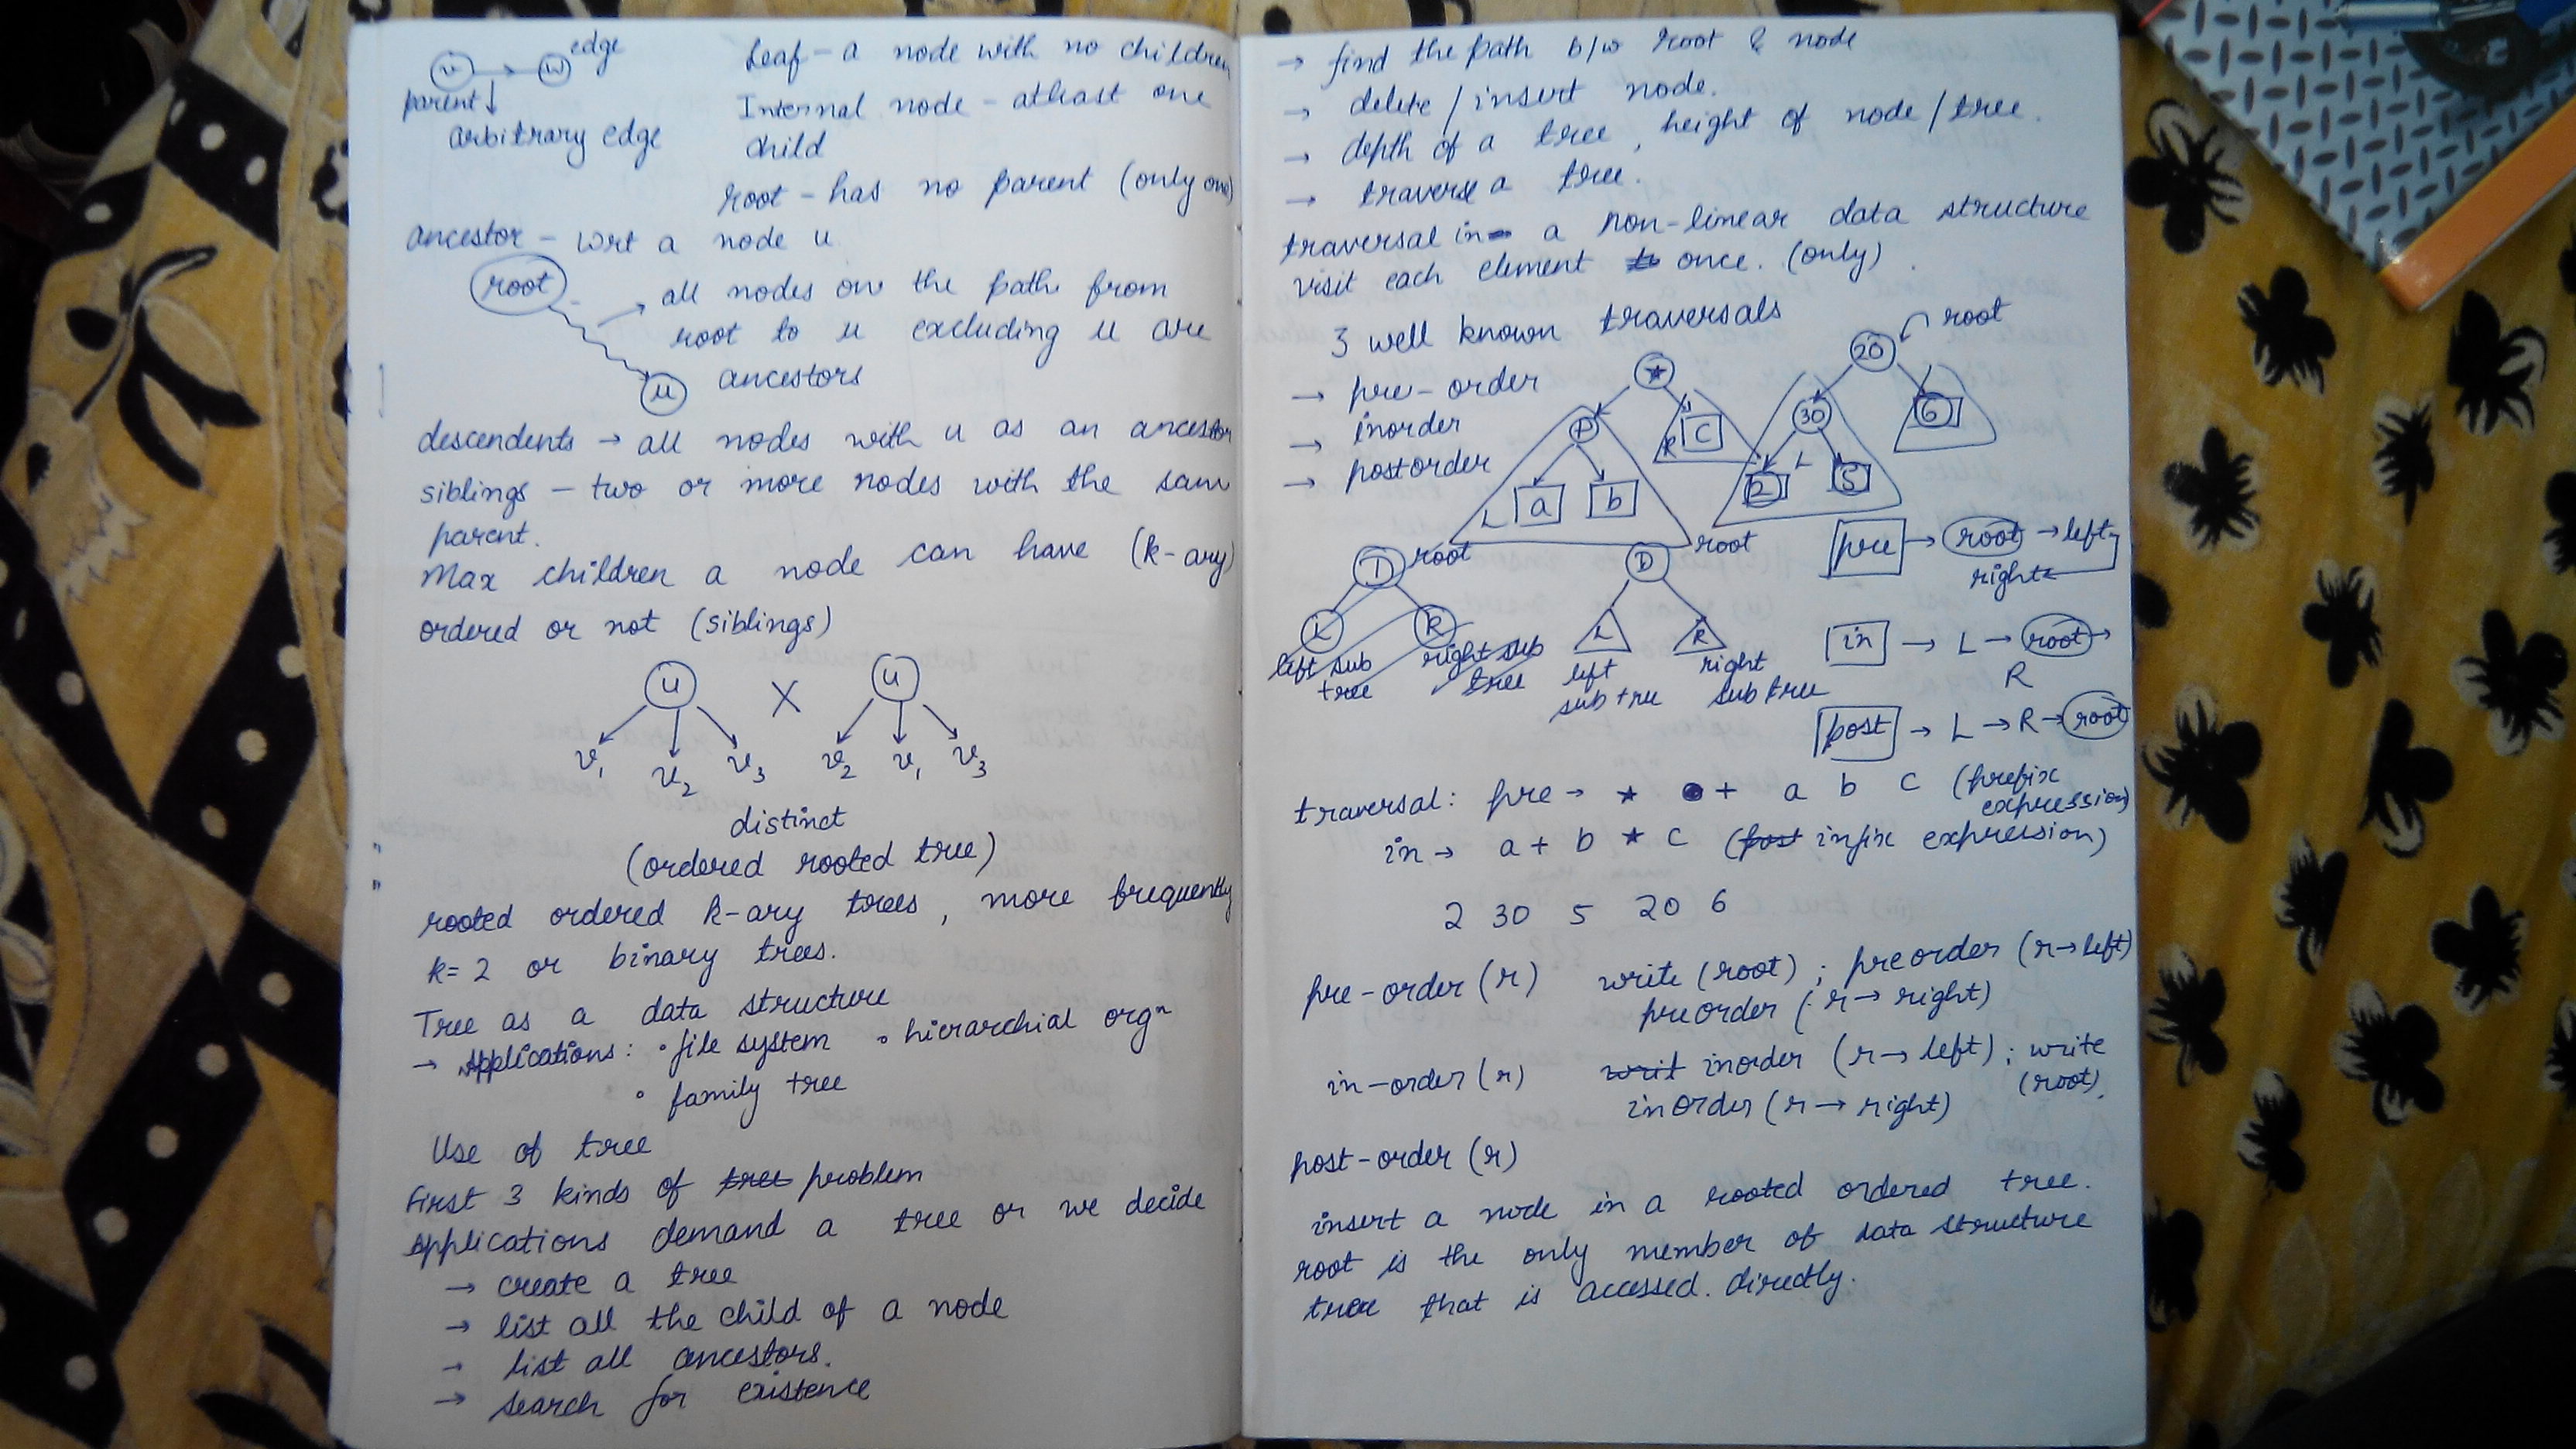 u → w edge
parent
arbitrary edge
Leaf - a node with no children
Internal node - atleast one
child
root - has no parent (only one)
ancestor - wrt a node u
root
→ all nodes on the path from
root to u excluding u are
ancestors
u
descendents → all nodes with u as an ancestor
siblings - two or more nodes with the same
parent.
Max children a node can have (k-ary)
ordered or not (siblings)
u X u
v1 v2 v3 v2 v1 v3
distinct
(ordered rooted tree)
rooted ordered k-ary trees, more frequently
k= 2 or binary trees.
Tree as a data structure
→ Applications: • file system • hierarchial orgn
• family tree
Use of tree
First 3 kinds of tree problem
Applications demand a tree or we decide
→ create a tree
→ list all the child of a node
→ list all ancestors.
→ search for existence
→ find the path b/w root & node
→ delete / insert node.
→ depth of a tree, height of node / tree.
→ traverse a tree.
traversal in a non-linear data structure
visit each element once. (only)
3 well known traversals
→ pre-order
→ inorder
→ postorder
★
C
R
a b
L
root
20
30 6
2 L 5
root
L R
left sub
tree
right sub
tree
D root
L R
left
sub tree
right
sub tree
pre → root → left
right
in → L → root →
R
post → L → R → root
traversal: pre → ★ + a b c (prefix
expression)
in → a + b ★ c (post infix expression)
2 30 5 20 6
pre-order (r) write (root) ; preorder (r→left)
preorder (r → right)
in-order (r) writ inorder (r→ left) ; write
(root).
inorder (r → right)
post-order (r)
insert a node in a rooted ordered tree.
root is the only member of data structure
tree that is accessed directly.